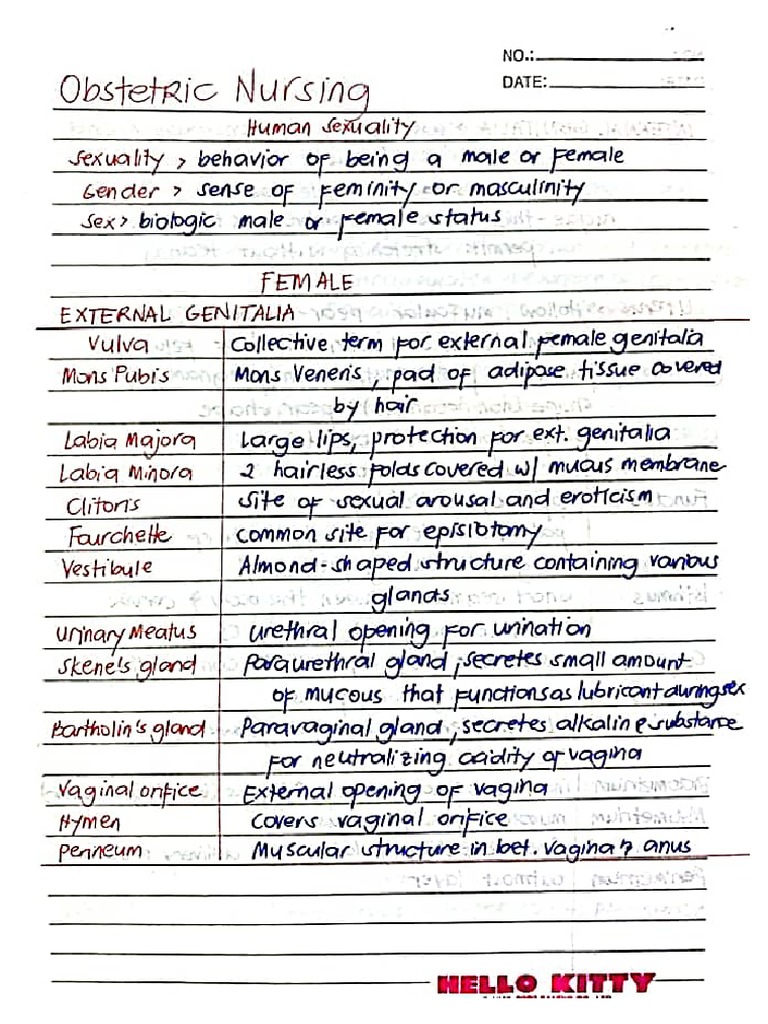 NO.:
DATE:
Obstetric Nursing
Human Sexuality
Sexuality > behavior of being a male or female
Gender > sense of feminity or masculinity
Sex > biologic male or female status
FEMALE
EXTERNAL GENITALIA
Vulva Collective term for external female genitalia
Mons Pubis Mons Veneris, pad of adipose tissue covered
by hair
Labia Majora Large lips, protection for ext. genitalia
Labia Minora 2 hairless folds covered w/ mucus membrane
Clitoris Site of sexual arousal and eroticism
Fourchette common site for episiotomy
Vestibule Almond-shaped structure containing various
glands
Urinary Meatus Urethral opening for urination
Skene's gland Paraurethral gland; secretes small amount
of mucous that functions as lubricant during sex
Bartholin's gland Paravaginal gland; secretes alkaline substance
for neutralizing acidity of vagina
Vaginal orifice External opening of vagina
Hymen Covers vaginal orifice
Perineum Muscular structure in bet. vagina & anus
HELLO KITTY